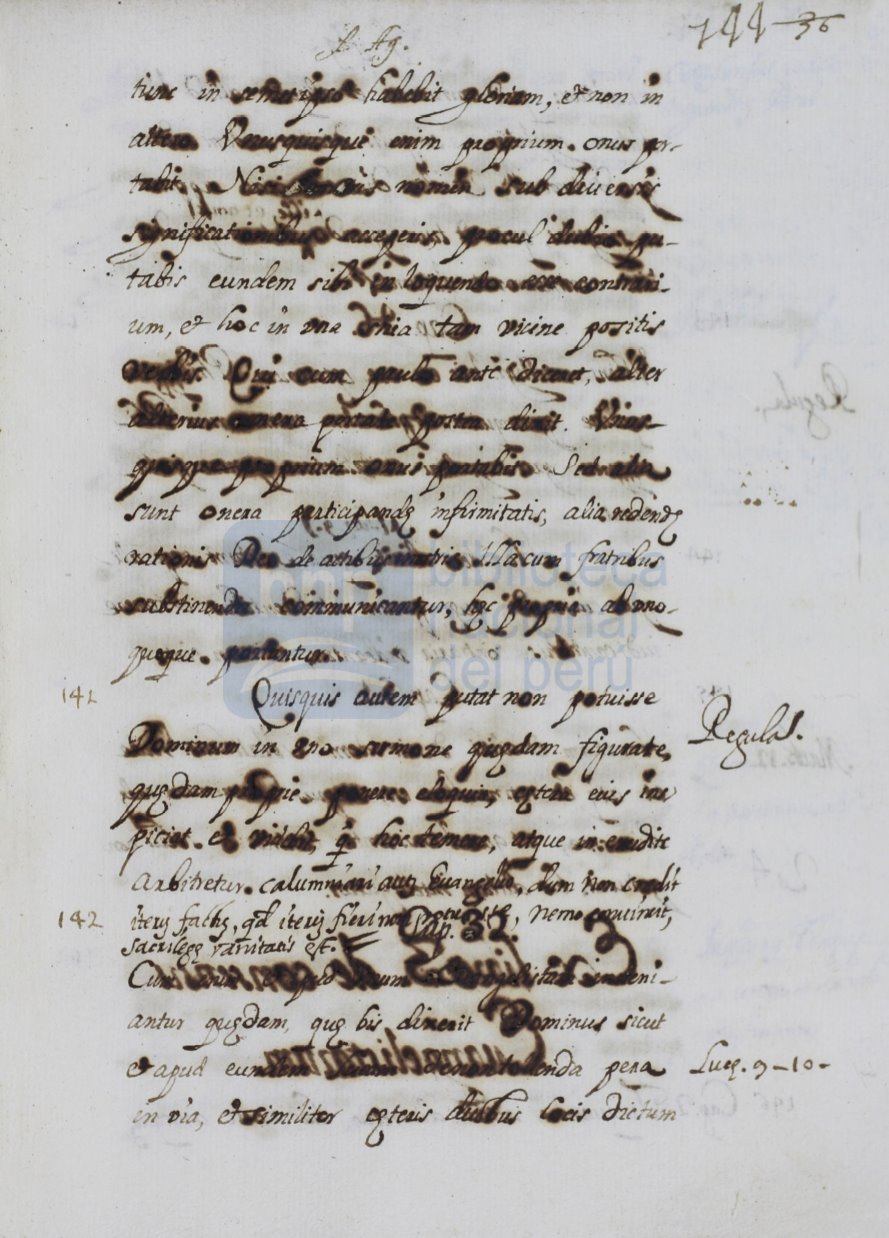 144 36
S. Ag.
tunc in semetipso habebit gloriam, et non in
altero. Vnusquisque enim proprium onus por-
tabit. Nisi nomen sub diuersis
significationibus acceperis, procul dubio pu-
tabis eundem sibi in loquendo esse contrari-
um, et hoc in vna tam vicine positis
verbis. Qui cum paulo ante diceret, alter
alterius onera portate, postea dixit. Vnus-
quisque proprium onus portabit. Sed alia
sunt onera participandę infirmitatis, alia redendę
rationis Deo de actibus nostris. Illa cum fratribus
substinenda communicantur, hęc propria ab vno-
quoque portantur.
141 Quisquis autem putat non potuisse
Regula 1.
Dominum in vno sermone quędam figurate,
quędam proprie ponere eloquia, cętera eius ins
piciat. et videbit, hoc temere, atque inerudite
Arbitretur. calumniari autē Euangelio, dum non credit
142 iterū factū, qd iterū fieri non potuisse, nemo conuincit,
sacrilegę vanitatis est.
Cap. 32.
Cum inueni-
antur quędam, quę bis dixerit Dominus sicut
et apud eundem de non tollenda pera
Lucę. 9-10-
in via, et similiter cęteris duobus locis dictum
biblioteca
nacional
del perú